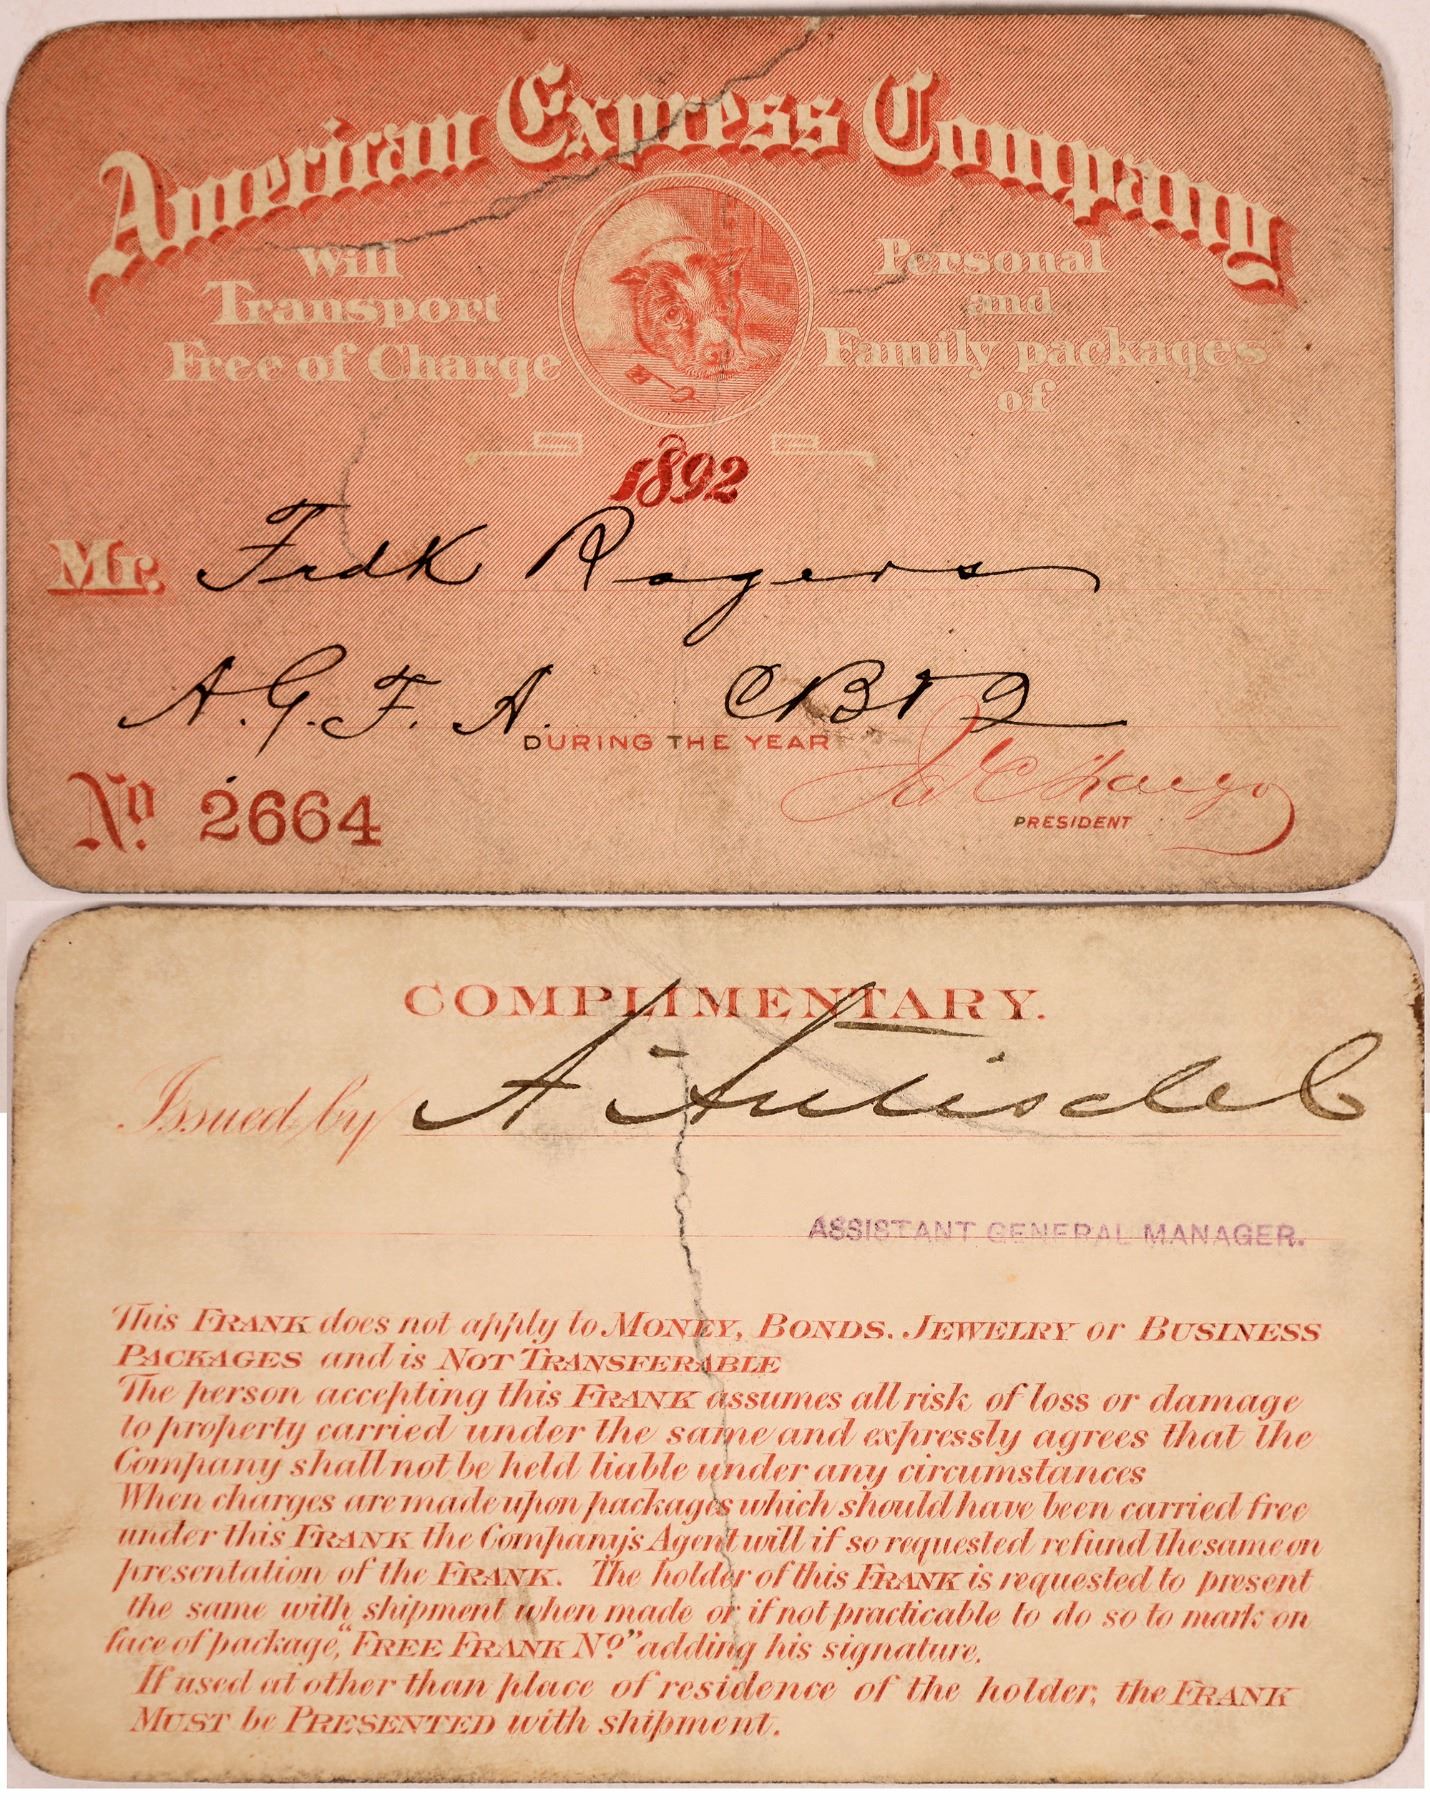 American Express Company
Will
Transport
Free of Charge
Personal
and
Family packages
of
1892
Mr. Fredk Rogers
A.G.F.A. CB&Q
DURING THE YEAR
Jas C Fargo
PRESIDENT
No 2664
COMPLIMENTARY.
Issued by A
ASSISTANT GENERAL MANAGER.
This FRANK does not apply to MONEY, BONDS. JEWELRY or BUSINESS
PACKAGES and is NOT TRANSFERABLE
The person accepting this FRANK assumes all risk of loss or damage
to property carried under the same and expressly agrees that the
Company shall not be held liable under any circumstances
When charges are made upon packages which should have been carried free
under this FRANK the Company's Agent will if so requested refund the same on
presentation of the FRANK. The holder of this FRANK is requested to present
the same with shipment when made or if not practicable to do so to mark on
face of package, "FREE FRANK No" adding his signature.
If used at other than place of residence of the holder, the FRANK
MUST be PRESENTED with shipment.